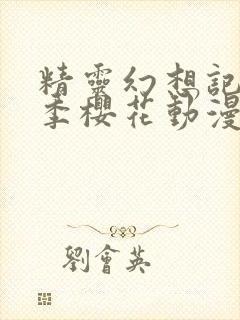 精靈幻想記
季櫻花動漫
劉會英